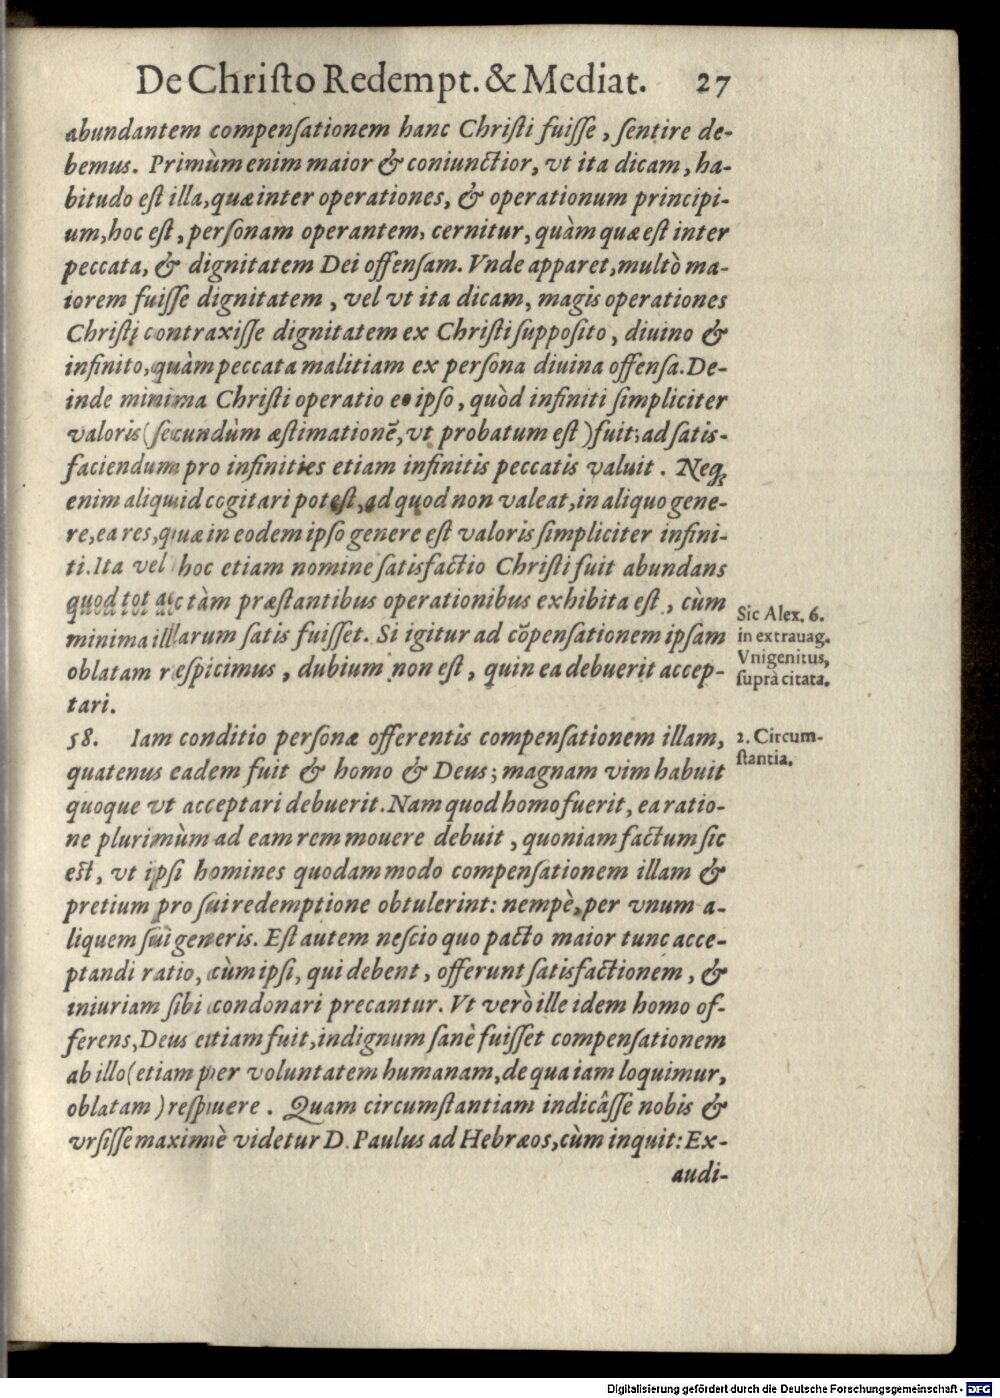 De Chriſto Redempt. & Mediat. 27
abundantem compenſationem hanc Chriſti fuiſſe, ſentire de-
bemus. Primùm enim maior & coniunctior, vt ita dicam, ha-
bitudo eſt illa, quæ inter operationes, & operationum principi-
um, hoc eſt, perſonam operantem, cernitur, quàm quæ eſt inter
peccata, & dignitatem Dei offenſam. Vnde apparet, multò ma-
iorem fuiſſe dignitatem, vel vt ita dicam, magis operationes
Chriſti contraxiſſe dignitatem ex Chriſti ſuppoſito, diuino &
infinito, quàm peccata malitiam ex perſona diuina offenſa. De-
inde minima Chriſti operatio eo ipſo, quòd infiniti ſimpliciter
valoris (ſecundùm æſtimationē, vt probatum eſt) fuit; ad ſatis-
faciendum pro infinities etiam infinitis peccatis valuit. Neq;
enim aliquid cogitari poteſt, ad quod non valeat, in aliquo gene-
re, ea res, quæ in eodem ipſo genere eſt valoris ſimpliciter infini-
ti. Ita vel hoc etiam nomine ſatisfactio Chriſti fuit abundans
quod tot ac tàm præſtantibus operationibus exhibita eſt, cùm
minima illarum ſatis fuiſſet. Si igitur ad cōpenſationem ipſam
oblatam reſpicimus, dubium non eſt, quin ea debuerit accep-
tari.
Sic Alex. 6.
in extrauag.
Vnigenitus,
ſuprà citata.
58. Iam conditio perſonæ offerentis compenſationem illam,
quatenus eadem fuit & homo & Deus; magnam vim habuit
quoque vt acceptari debuerit. Nam quod homo fuerit, ea ratio-
ne plurimùm ad eam rem mouere debuit, quoniam factum ſic
eſt, vt ipſi homines quodammodo compenſationem illam &
pretium pro ſui redemptione obtulerint: nempè, per vnum a-
liquem ſui generis. Eſt autem neſcio quo pacto maior tunc acce-
ptandi ratio, cùm ipſi, qui debent, offerunt ſatisfactionem, &
iniuriam ſibi condonari precantur. Vt verò ille idem homo of-
ferens, Deus etiam fuit, indignum ſanè fuiſſet compenſationem
ab illo (etiam per voluntatem humanam, de qua iam loquimur,
oblatam) reſpuere. Quam circumſtantiam indicâſſe nobis &
vrſiſſe maximè videtur D. Paulus ad Hebræos, cùm inquit: Ex-
audi-
2. Circum-
ſtantia.
Digitalisierung gefördert durch die Deutsche Forschungsgemeinschaft - DFG